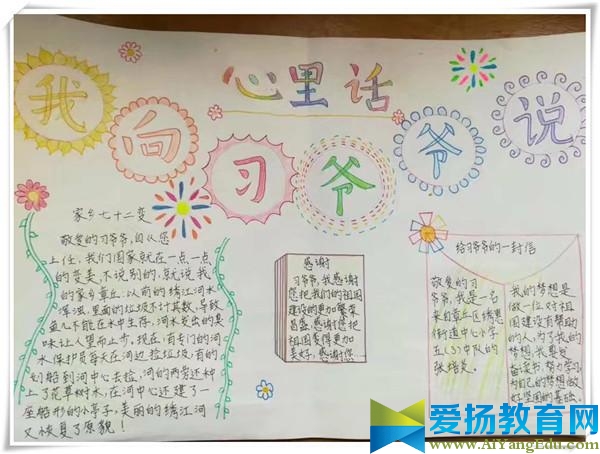 心里话
我向习爷爷说
家乡七十二变
敬爱的习爷爷,自从您
上任,我们国家就在一点一点
的变美,不说别的,就说我
的家乡章丘:以前的绣江河水
浑浊,里面的垃圾不计其数,导致
鱼儿不能在水中生存,河水发出的臭
味让人望而止步,现在,有专门的河
水保护员每天在河边捡垃圾,有的
划船到河中心去捡,河的两旁还种
上了花草树木,在河中心还建了一
座船形的小亭子,美丽的绣江河
又恢复了原貌!
感谢
习爷爷,我感谢
您把我们的祖国
建设的更加繁荣
昌盛,感谢您把
祖国变得更加
美好,感谢您
给习爷爷的一封信
敬爱的习
爷爷,我是一名
来自章丘区绣惠
街道中心小学
五(3)中队的
我的梦想是
做一位对祖
国建设有帮助
的人,为了我的
梦想,我要发
奋读书,努力学习,
为自己的梦想做
好坚固的基础。
爱扬教育网
www.AiYangEdu.com